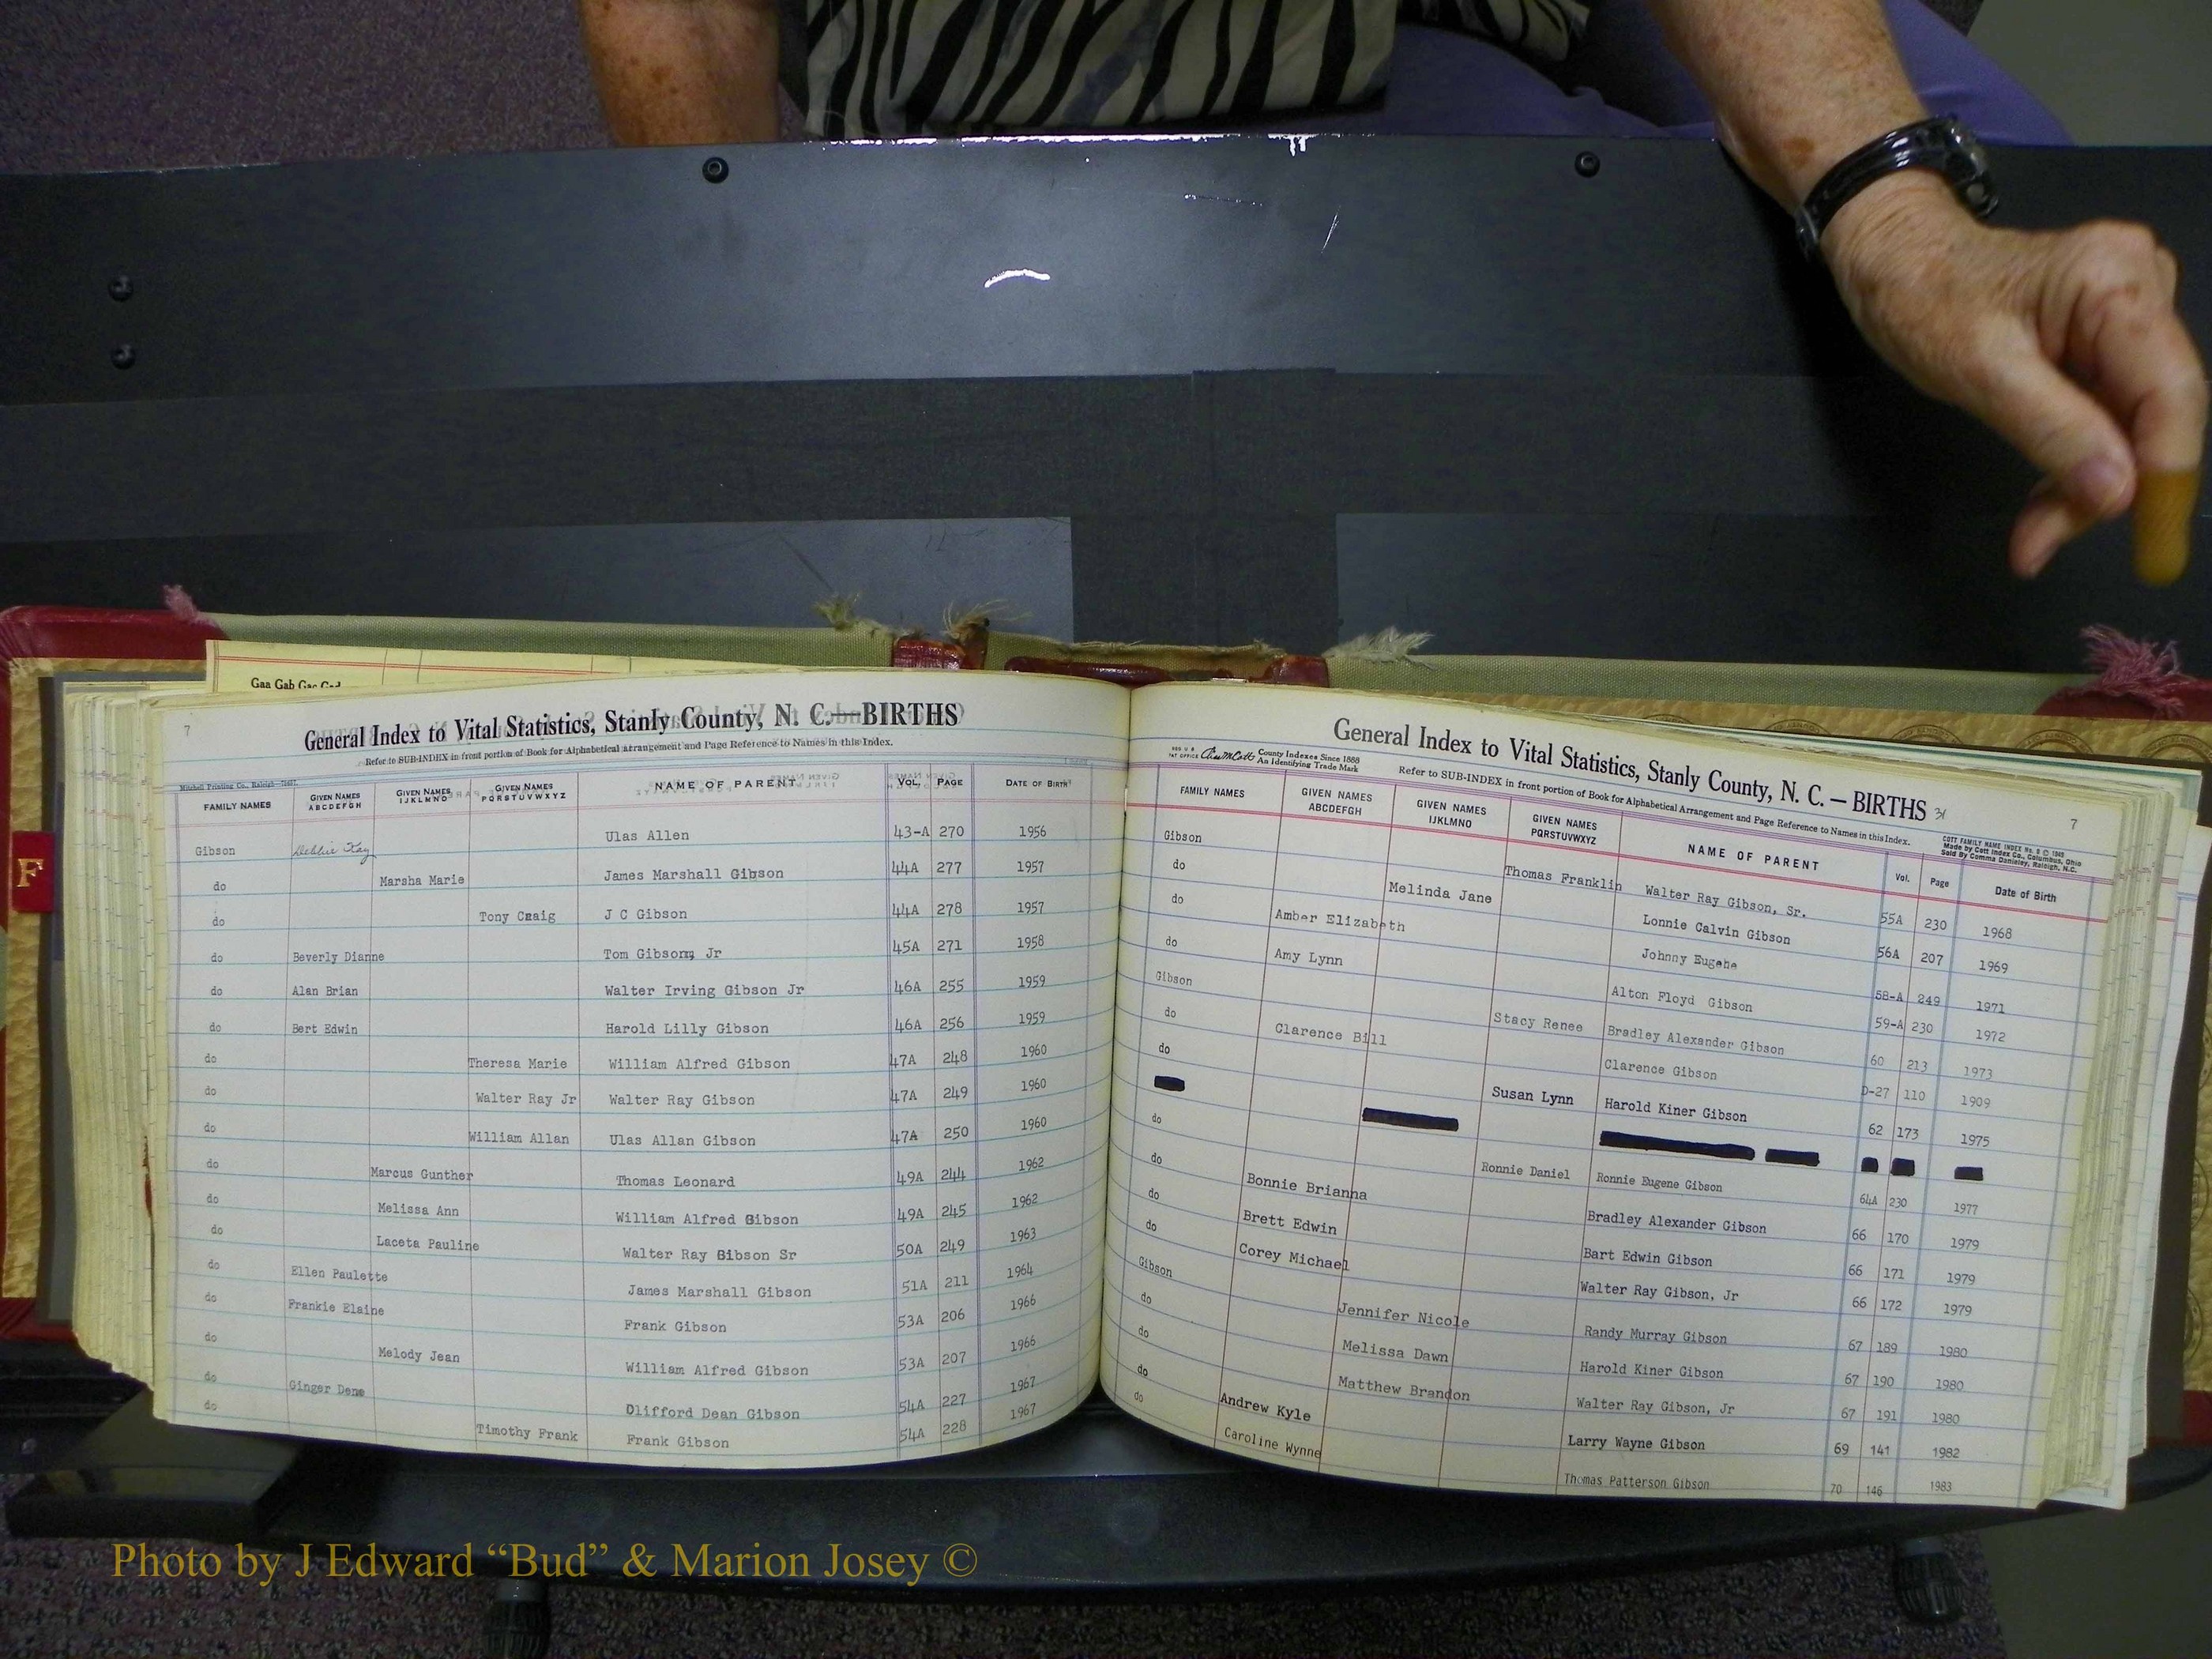 Gaa Gab Gac Gad
7
General Index to Vital Statistics, Stanly County, N. C.—BIRTHS
Refer to SUB-INDEX in front portion of Book for Alphabetical arrangement and Page Reference to Names in this Index.
FAMILY NAMES GIVEN NAMES ABCDEFGH GIVEN NAMES IJKLMNO GIVEN NAMES PQRSTUVWXYZ NAME OF PARENT VOL. PAGE DATE OF BIRTH
Gibson Debbie Kay Ulas Allen 43-A 270 1956
do Marsha Marie James Marshall Gibson 44A 277 1957
do Tony Craig J C Gibson 44A 278 1957
do Beverly Dianne Tom Gibson, Jr 45A 271 1958
do Alan Brian Walter Irving Gibson Jr 46A 255 1959
do Bert Edwin Harold Lilly Gibson 46A 256 1959
do Theresa Marie William Alfred Gibson 47A 248 1960
do Walter Ray Jr Walter Ray Gibson 47A 249 1960
do William Allan Ulas Allan Gibson 47A 250 1960
do Marcus Gunther Thomas Leonard 49A 244 1962
do Melissa Ann William Alfred Gibson 49A 245 1962
do Laceta Pauline Walter Ray Gibson Sr 50A 249 1963
do Ellen Paulette James Marshall Gibson 51A 211 1964
do Frankie Elaine Frank Gibson 53A 206 1966
do Melody Jean William Alfred Gibson 53A 207 1966
do Ginger Dene Clifford Dean Gibson 54A 227 1967
do Timothy Frank Frank Gibson 54A 228 1967
General Index to Vital Statistics, Stanly County, N. C. — BIRTHS 31
7
County Indexes Since 1888
An Identifying Trade Mark
Refer to SUB-INDEX in front portion of Book for Alphabetical Arrangement and Page Reference to Names in this Index.
COTT FAMILY NAME INDEX
Made by Cott Index Co., Columbus, Ohio
Sold By Comma Danieley, Raleigh, N.C.
FAMILY NAMES GIVEN NAMES ABCDEFGH GIVEN NAMES IJKLMNO GIVEN NAMES PQRSTUVWXYZ NAME OF PARENT Vol. Page Date of Birth
Gibson Thomas Franklin Walter Ray Gibson, Sr. 55A 230 1968
do Melinda Jane Lonnie Calvin Gibson 56A 207 1969
do Amber Elizabeth Johnny Eugene 58-A 249 1971
do Amy Lynn Alton Floyd Gibson 59-A 230 1972
Gibson Stacy Renee Bradley Alexander Gibson 60 213 1973
do Clarence Bill Clarence Gibson D-27 110 1909
do Susan Lynn Harold Kiner Gibson 62 173 1975
do Ronnie Daniel Ronnie Eugene Gibson 64A 230 1977
do Bonnie Brianna Bradley Alexander Gibson 66 170 1979
do Brett Edwin Bart Edwin Gibson 66 171 1979
do Corey Michael Walter Ray Gibson, Jr 66 172 1979
Gibson Jennifer Nicole Randy Murray Gibson 67 189 1980
do Melissa Dawn Harold Kiner Gibson 67 190 1980
do Matthew Brandon Walter Ray Gibson, Jr 67 191 1980
do Andrew Kyle Larry Wayne Gibson 69 141 1982
do Caroline Wynne Thomas Patterson Gibson 70 146 1983
F
Photo by J Edward “Bud” & Marion Josey ©